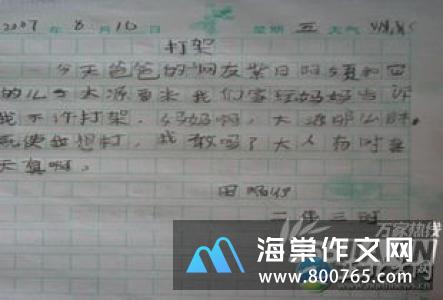 2007 年 8 月 10 日 星期 五 天气
打架
今天爸爸的网友紫日
的儿子大源要来我们家玩妈妈告诉
我不许打架。妈妈啊，大源那么胖。
我想打，我敢吗？大人有时真
天真啊。
田
二年三班
万家热线
海棠作文网
www.800765.com